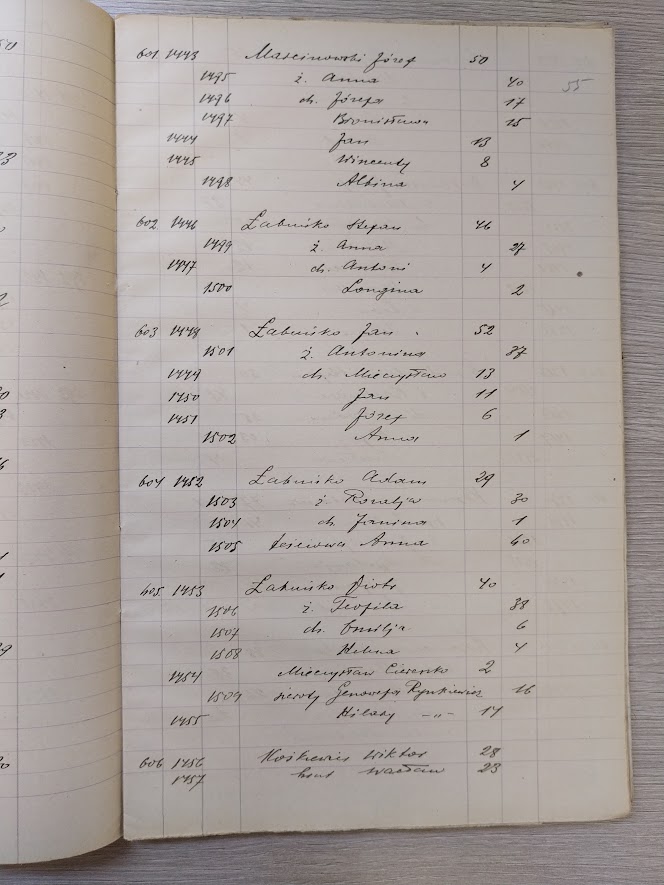 601 1443 Marcinowski Józef 50
1495 ż. Anna 40 55
1496 ch. Józefa 17
1497 Bronisława 15
1444 Jan 13
1445 Wincenty 8
1498 Albina 4
602 1446 Łabuńko Stefan 46
1499 ż. Anna 27
1447 ch. Antoni 4
1500 Longina 2
603 1448 Łabuńko Jan 52
1501 ż. Antonina 37
1449 ch. Mieczysław 13
1450 Jan 11
1451 Józef 6
1502 Anna 1
604 1452 Łabuńko Adam 29
1503 ż Rozalja 30
1504 ch. Janina 1
1505 teściowa Anna 60
605 1453 Łabuńko Piotr 40
1506 ż. Teofila 38
1507 ch. Emilja 6
1508 Helena 4
1454 Mieczysław 2
1509 sieroty Genowefa Rynkiewicz 16
1455 Hilary -„- 14
606 1456 Wiktor 28
1457 Wacław 23